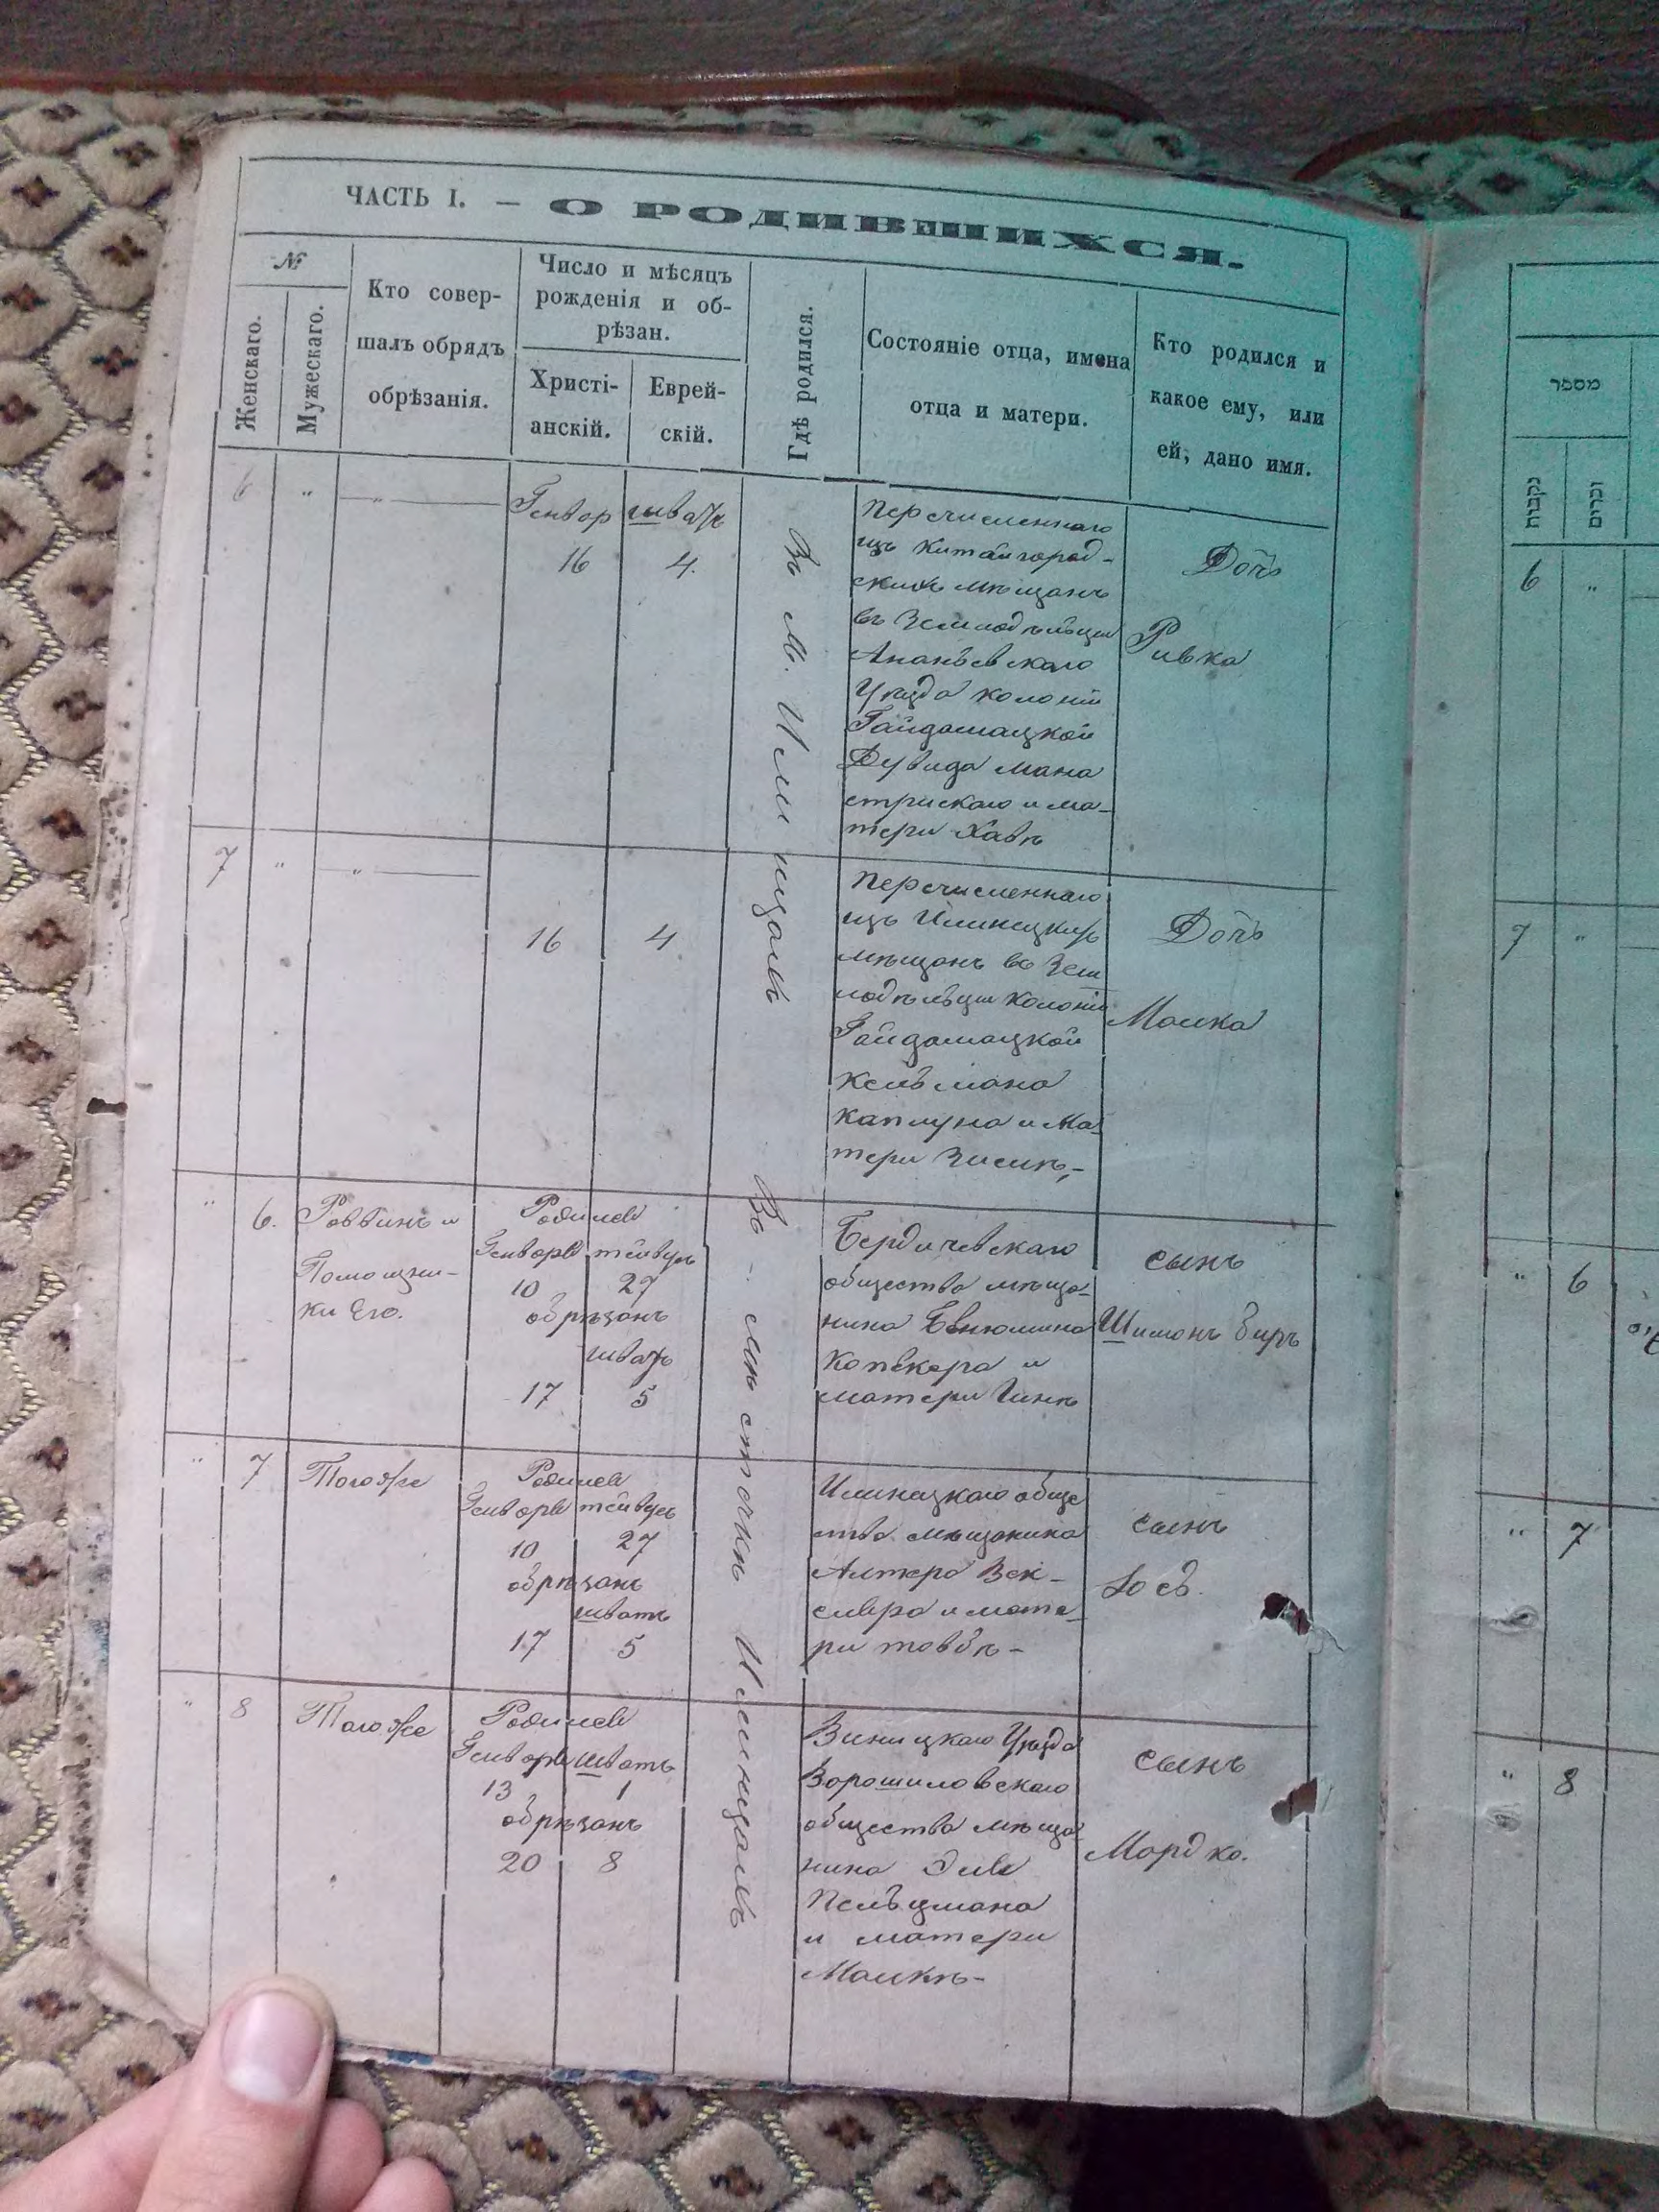 ЧАСТЬ I. — О РОДИВШИХСЯ.
№
Женскаго.
Мужескаго.
Кто совер-
шалъ обрядъ
обрѣзанія.
Число и мѣсяцъ
рожденія и об-
рѣзан.
Христі-
анскій.
Еврей-
скій.
Гдѣ родился.
Состояніе отца, имена
отца и матери.
Кто родился и
какое ему, или
ей, дано имя.
6 „ — „ —
Генвар шватъ
16 4.
Въ м. Илинцахъ
Перечисленнаго
изъ Китайгород-
скихъ мѣщанъ
въ Земледѣльцы
Ананьевскаго
Уѣзда колоніи
Гайдамацкой
Дувида Мана
стрискаго и ма-
тери Хавѣ
Дочь
Ривка
7 „ — „ —
16 4
Перечисленнаго
изъ Илинецкихъ
мѣщанъ въ Зем
ледѣльцы Колоніи
Гайдамацкой
Кельмана
Каплуна и Ма-
тери Зислѣ,-
Дочь
Малка
„ 6. Раввинъ и
Помощни-
ки Его.
Родился
Генваря тейвусъ
10 27
обрѣзанъ
шватъ
17 5
Въ мѣстечкѣ Илинцахъ
Бердичевскаго
общества мѣща-
нина
и
матери
сынъ
Шимонъ Беръ
„ 7 Тогоже
Родился
Генваря тейвусъ
10 27
обрѣзанъ
шватъ
17 5
Илинецкаго обще
ства мѣщанина
Алтера Век-
слера и мате-
ри товбѣ-
сынъ
„ 8 Тогоже
Родился
Генваря шватъ
13 1
обрѣзанъ
20 8
Виницкаго Уѣзда
Ворошиловскаго
общества мѣща
нина Эли
Пельцмана
и матери
Малкѣ-
сынъ
Мордко.
מספר
נקבות
זכרים
6 „
7 „
„ 6
„ 7
„ 8